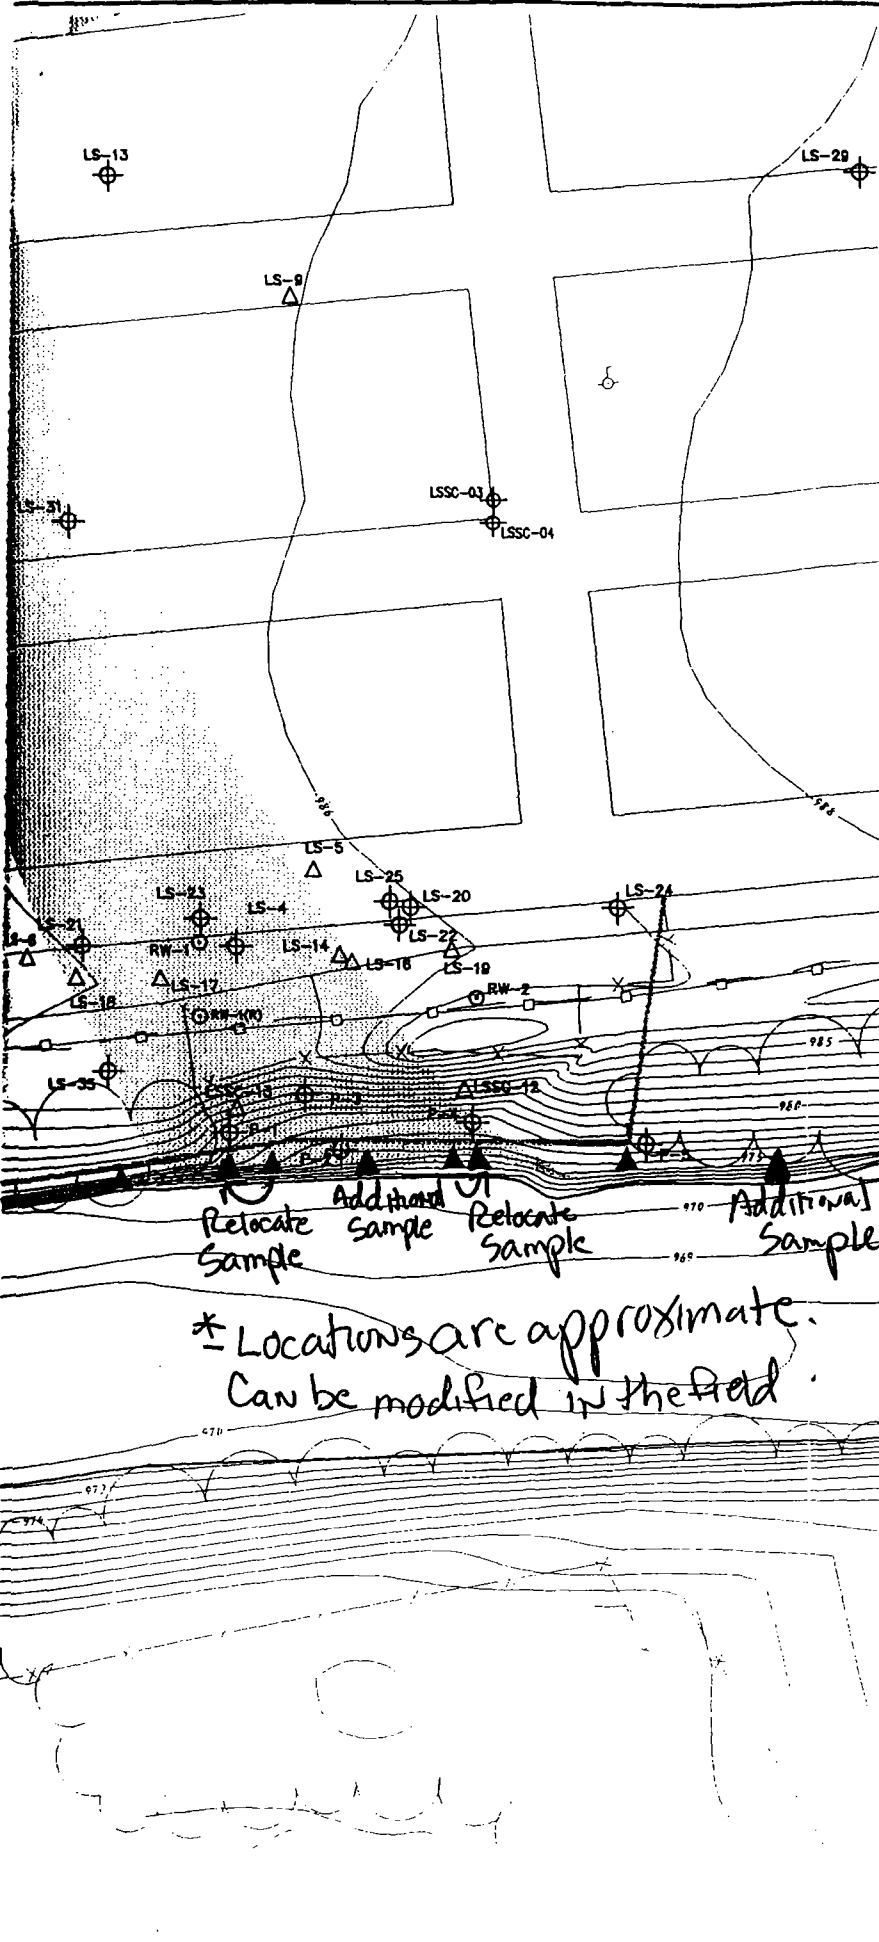 LS-13
LS-29
LS-9
LSSC-03
LS-31
LSSC-04
986
985
LS-5
LS-25
LS-23
LS-20
LS-24
LS-4
LS-21
LS-22
RW-1
LS-14
LS-16
LS-19
LS-17
LS-18
RW-2
RW-1(R)
985
LS-35
LSSC-12
980
P-1
975
Relocate Sample
Additional Sample
Relocate Sample
970
Additional Sample
969
* Locations are approximate.
Can be modified in the field.
970